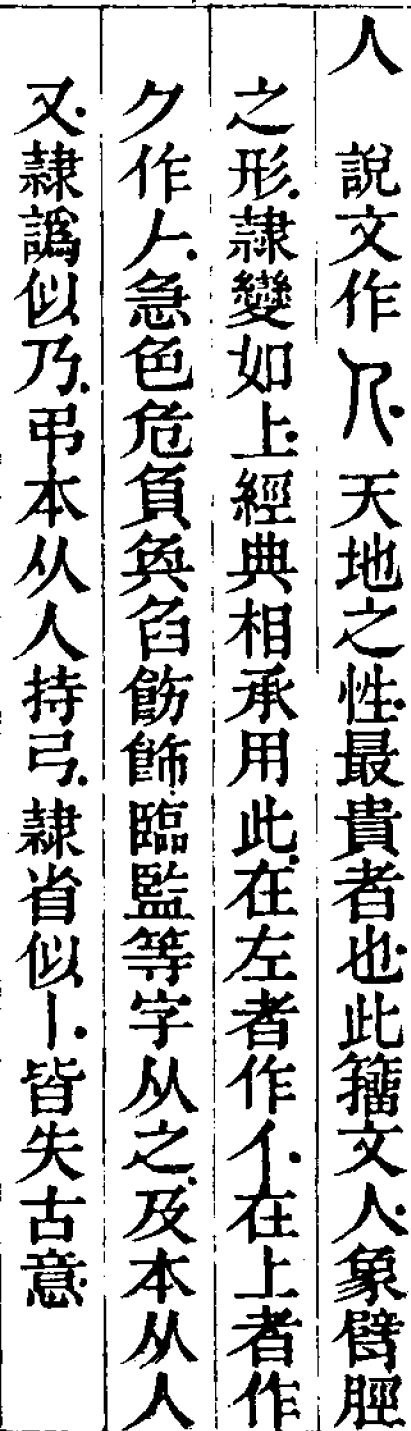 人　說文作𠆢天地之性最貴者也此籒文人象臂脛
之形隷變如上經典相承用此在左者作亻在上者作
𠂊作𠂉急色危負奐臽飭飾臨監等字从之及本从人
又隷譌似乃弔本从人持弓隷省似丨皆失古意